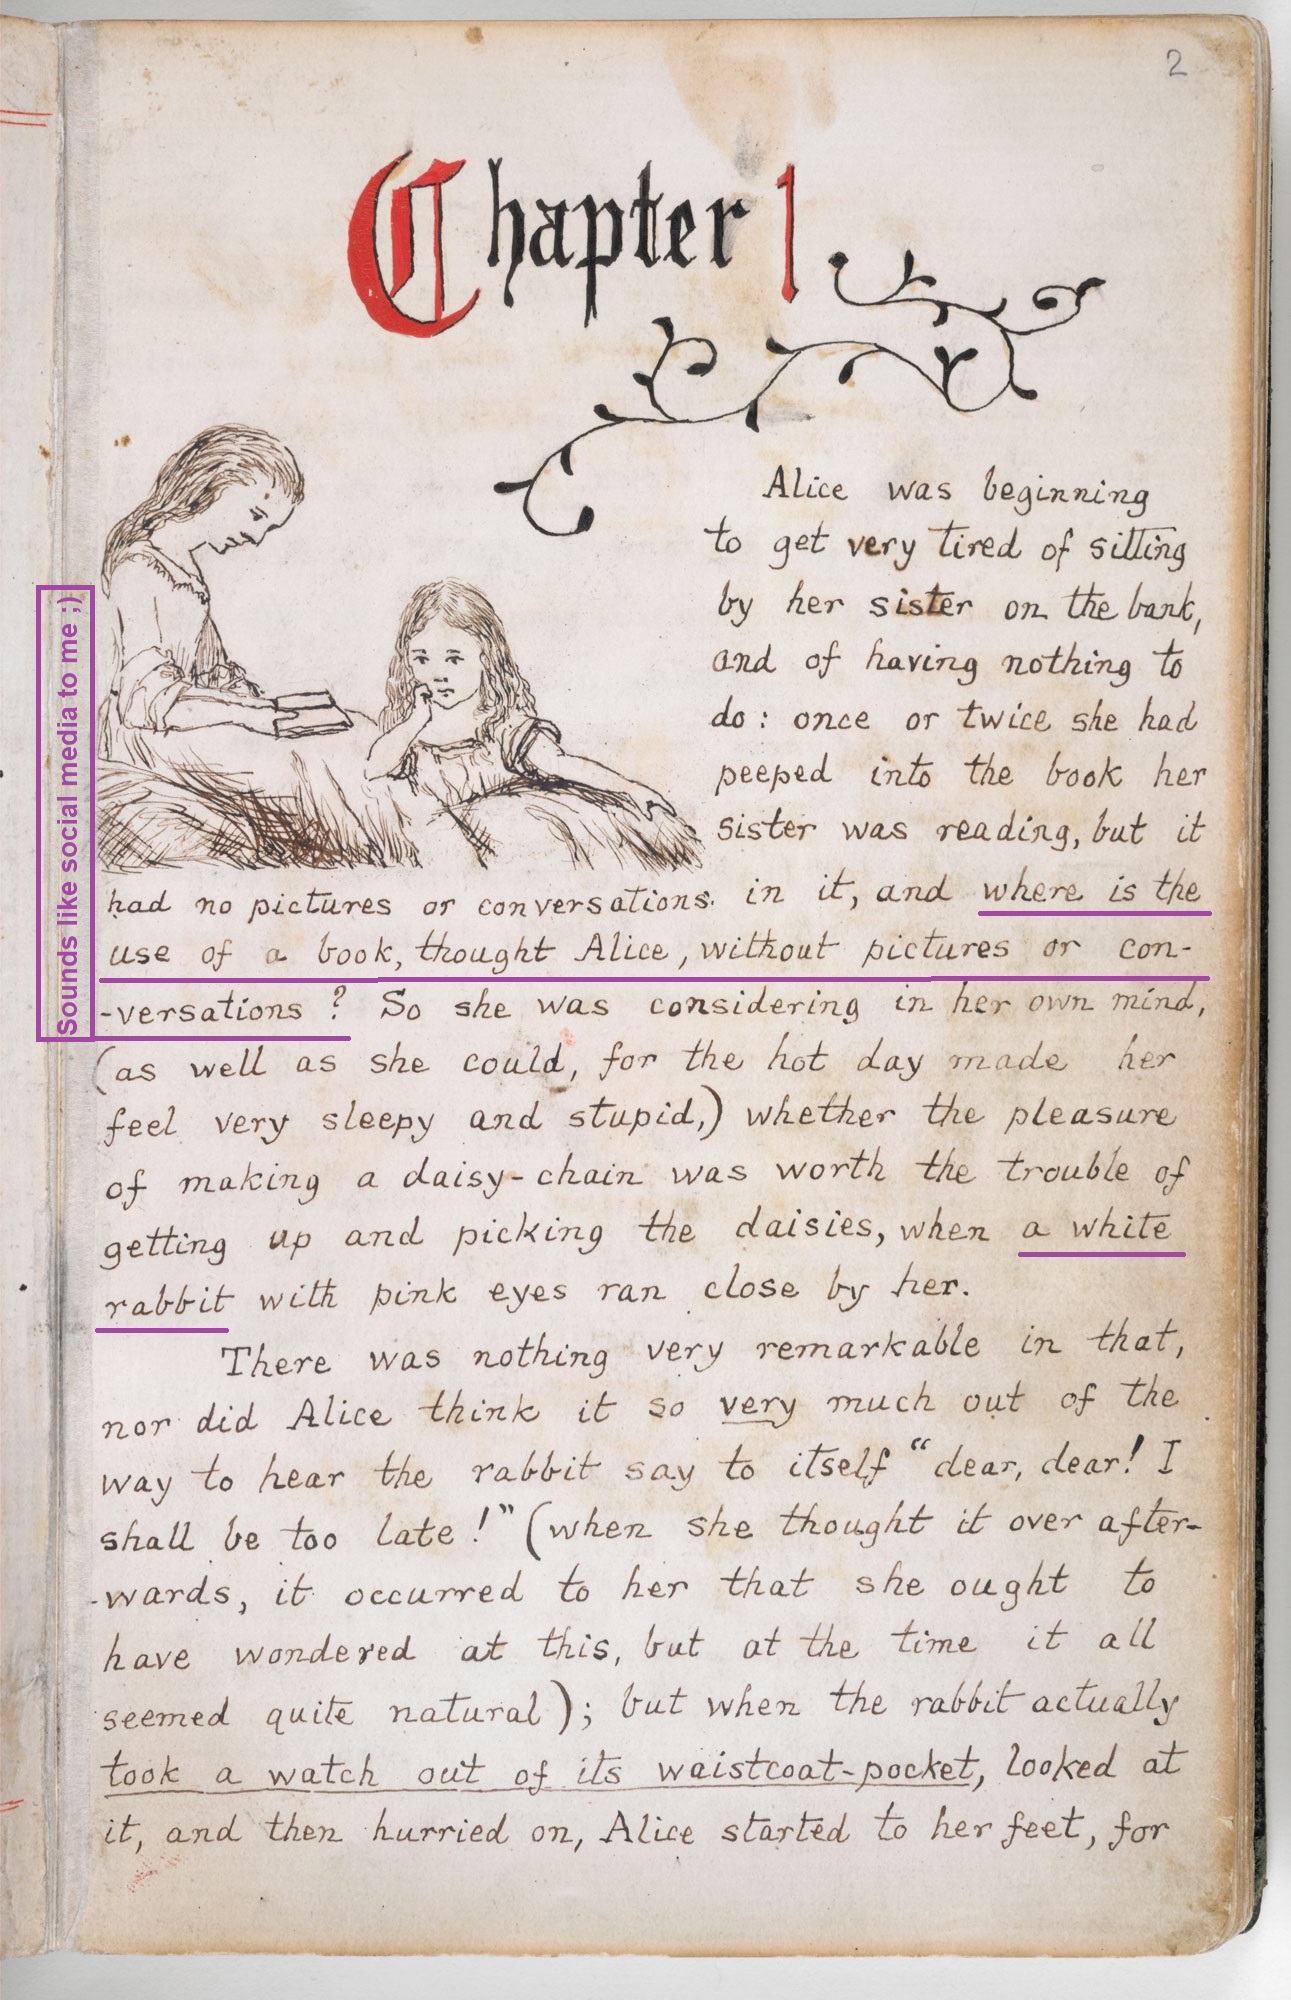 2
Chapter 1
Alice was beginning
to get very tired of sitting
by her sister on the bank,
and of having nothing to
do: once or twice she had
peeped into the book her
sister was reading, but it
had no pictures or conversations in it, and where is the
use of a book, thought Alice, without pictures or con-
-versations? So she was considering in her own mind,
(as well as she could, for the hot day made her
feel very sleepy and stupid,) whether the pleasure
of making a daisy-chain was worth the trouble of
getting up and picking the daisies, when a white
rabbit with pink eyes ran close by her.
There was nothing very remarkable in that,
nor did Alice think it so very much out of the
way to hear the rabbit say to itself "dear, dear! I
shall be too late!" (when she thought it over after-
-wards, it occurred to her that she ought to
have wondered at this, but at the time it all
seemed quite natural); but when the rabbit actually
took a watch out of its waistcoat-pocket, looked at
it, and then hurried on, Alice started to her feet, for
Sounds like social media to me ;)